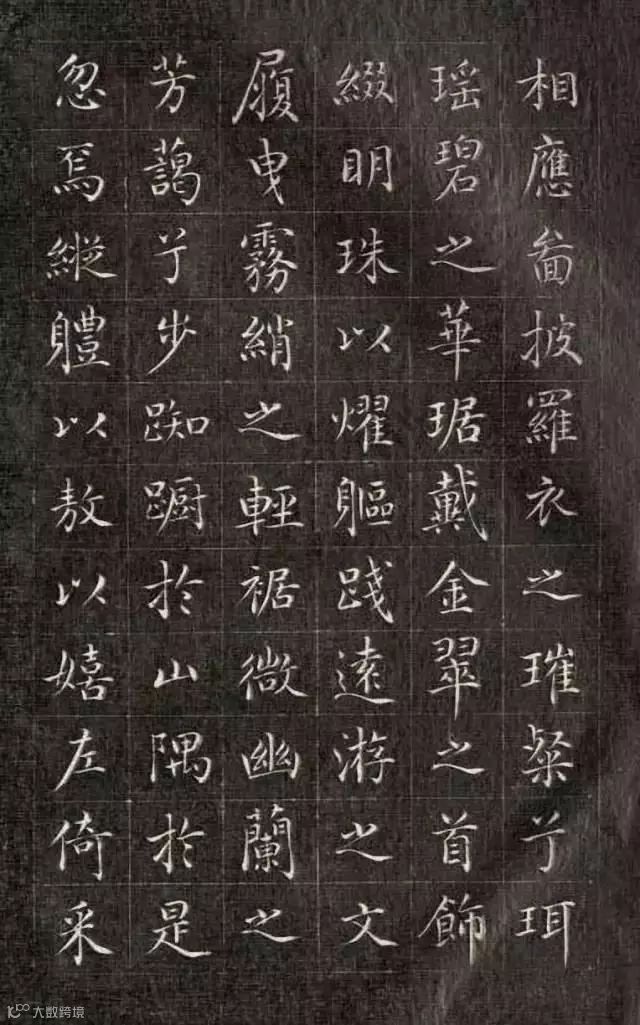 相應啚披羅衣之璀粲兮珥
瑶碧之華琚戴金翠之首飾
綴明珠以燿軀踐遠游之文
履曳霧綃之輕裾微幽蘭之
芳藹兮步踟躕於山隅於是
忽焉縱體以敖以嬉左倚采
大数跨境